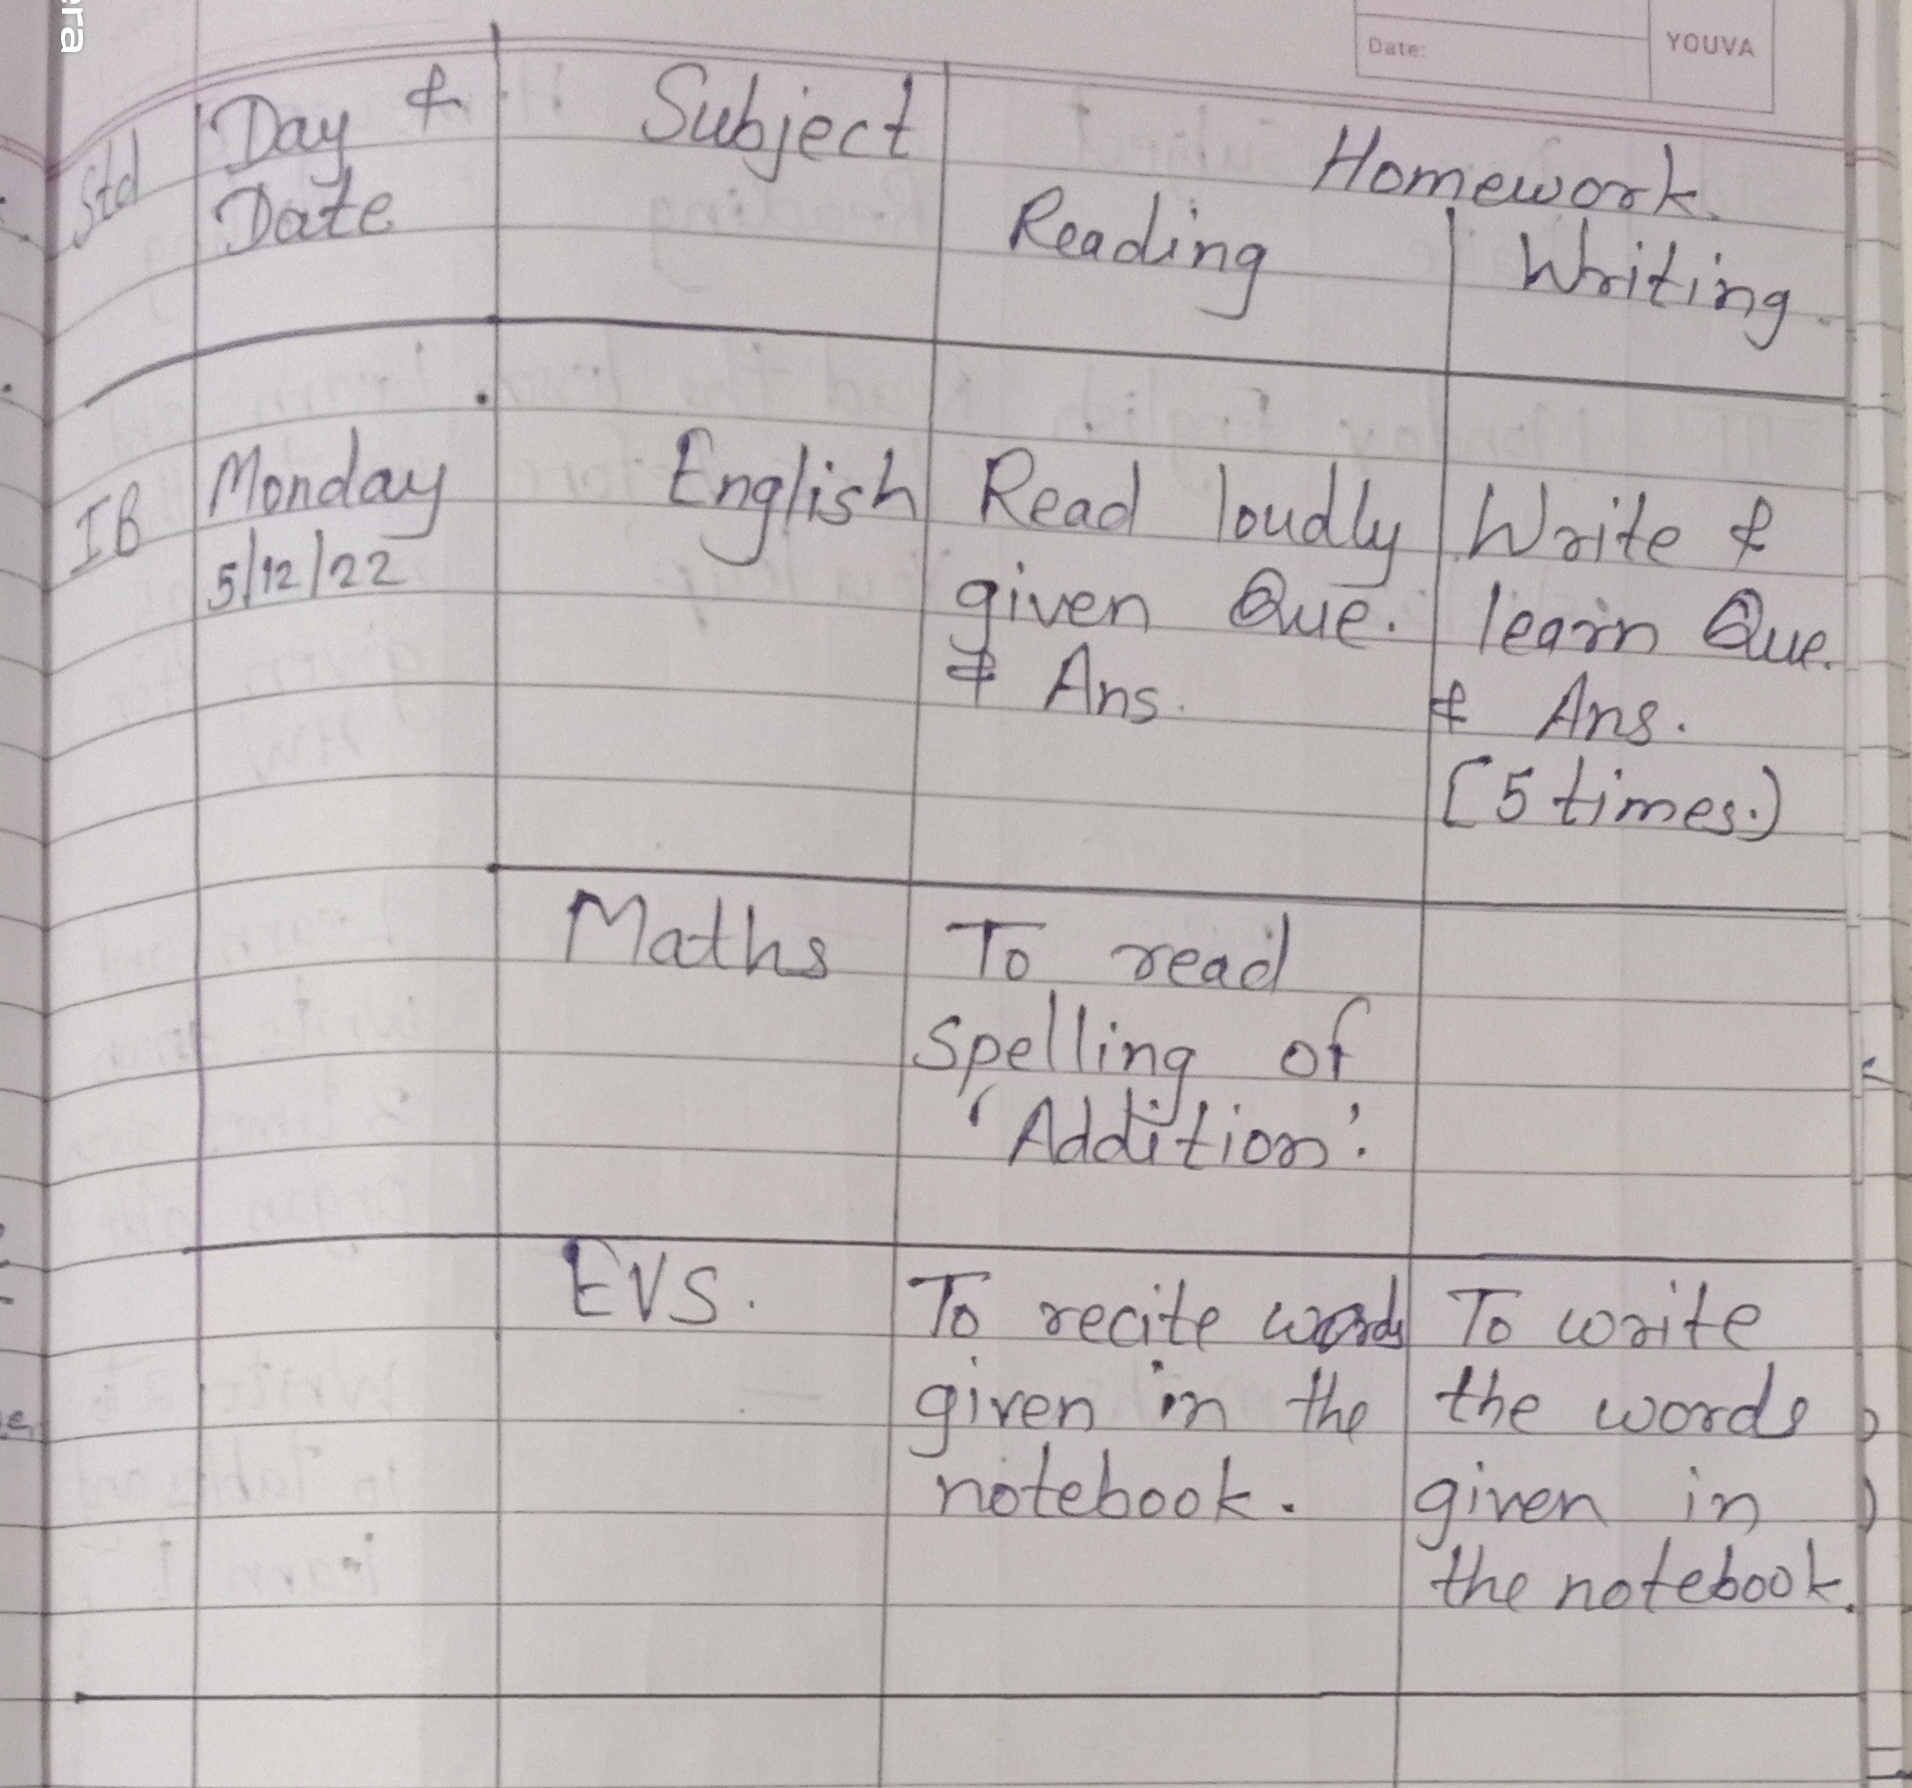 era
Date: YOUVA
Std Day & Subject Homework.
Date Reading Writing.
IB Monday English Read loudly Write &
5/12/22 given Que. learn Que.
& Ans. & Ans.
[5 times.)
Maths To read
spelling of
'Addition'.
EVS. To recite words To write
given in the the words
notebook. given in
the notebook.